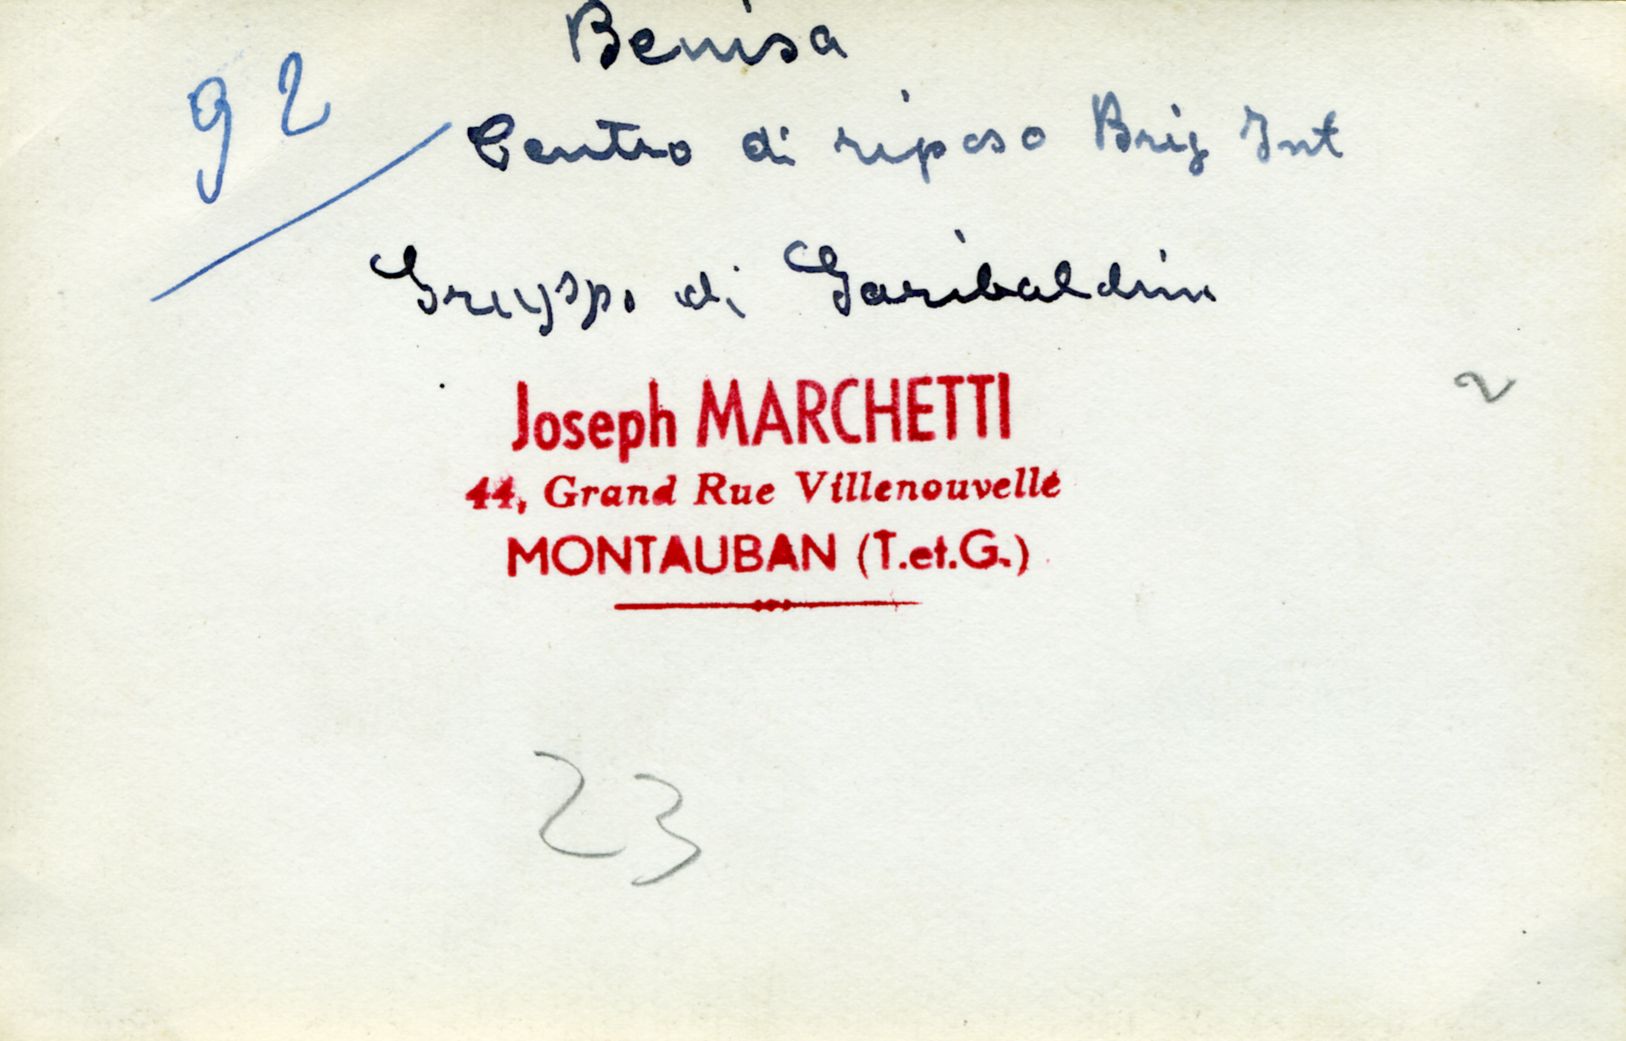 Benisa
92
Centro di riposo Brig Int
Gruppo di Garibaldini
Joseph MARCHETTI
44, Grand Rue Villenouvelle
MONTAUBAN (T.et.G.)
2
23